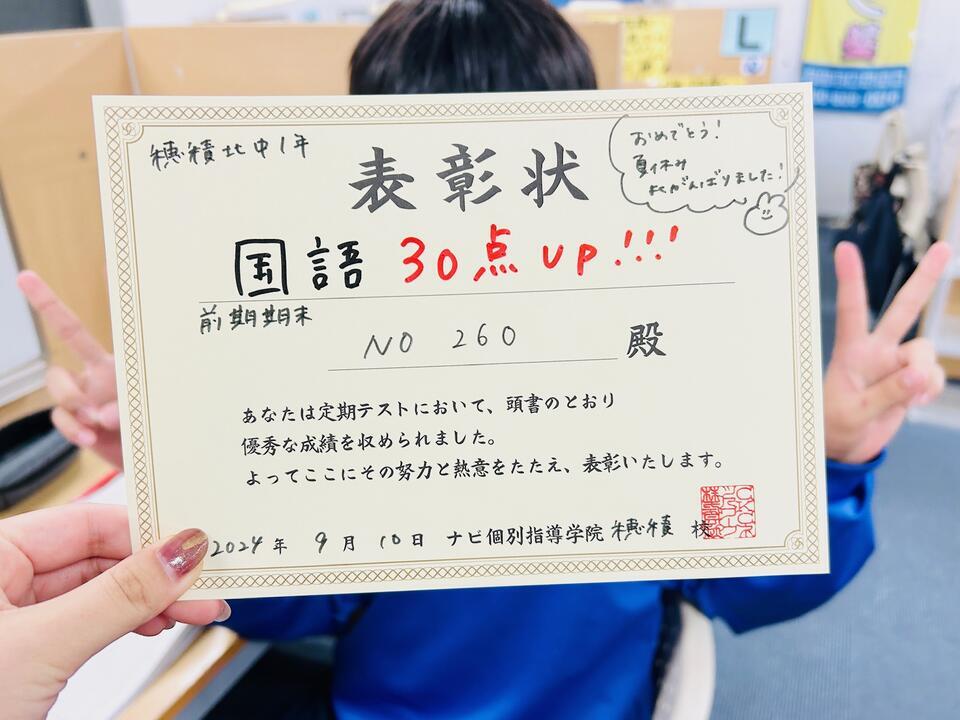 穂積北中1年
表彰状
おめでとう!
夏休み
よくがんばりました!
国語 30点 UP!!!
前期期末
NO 260 殿
あなたは定期テストにおいて、頭書のとおり
優秀な成績を収められました。
よってここにその努力と熱意をたたえ、表彰いたします。
2024年 9月 10日 ナビ個別指導学院 穂積 校
L